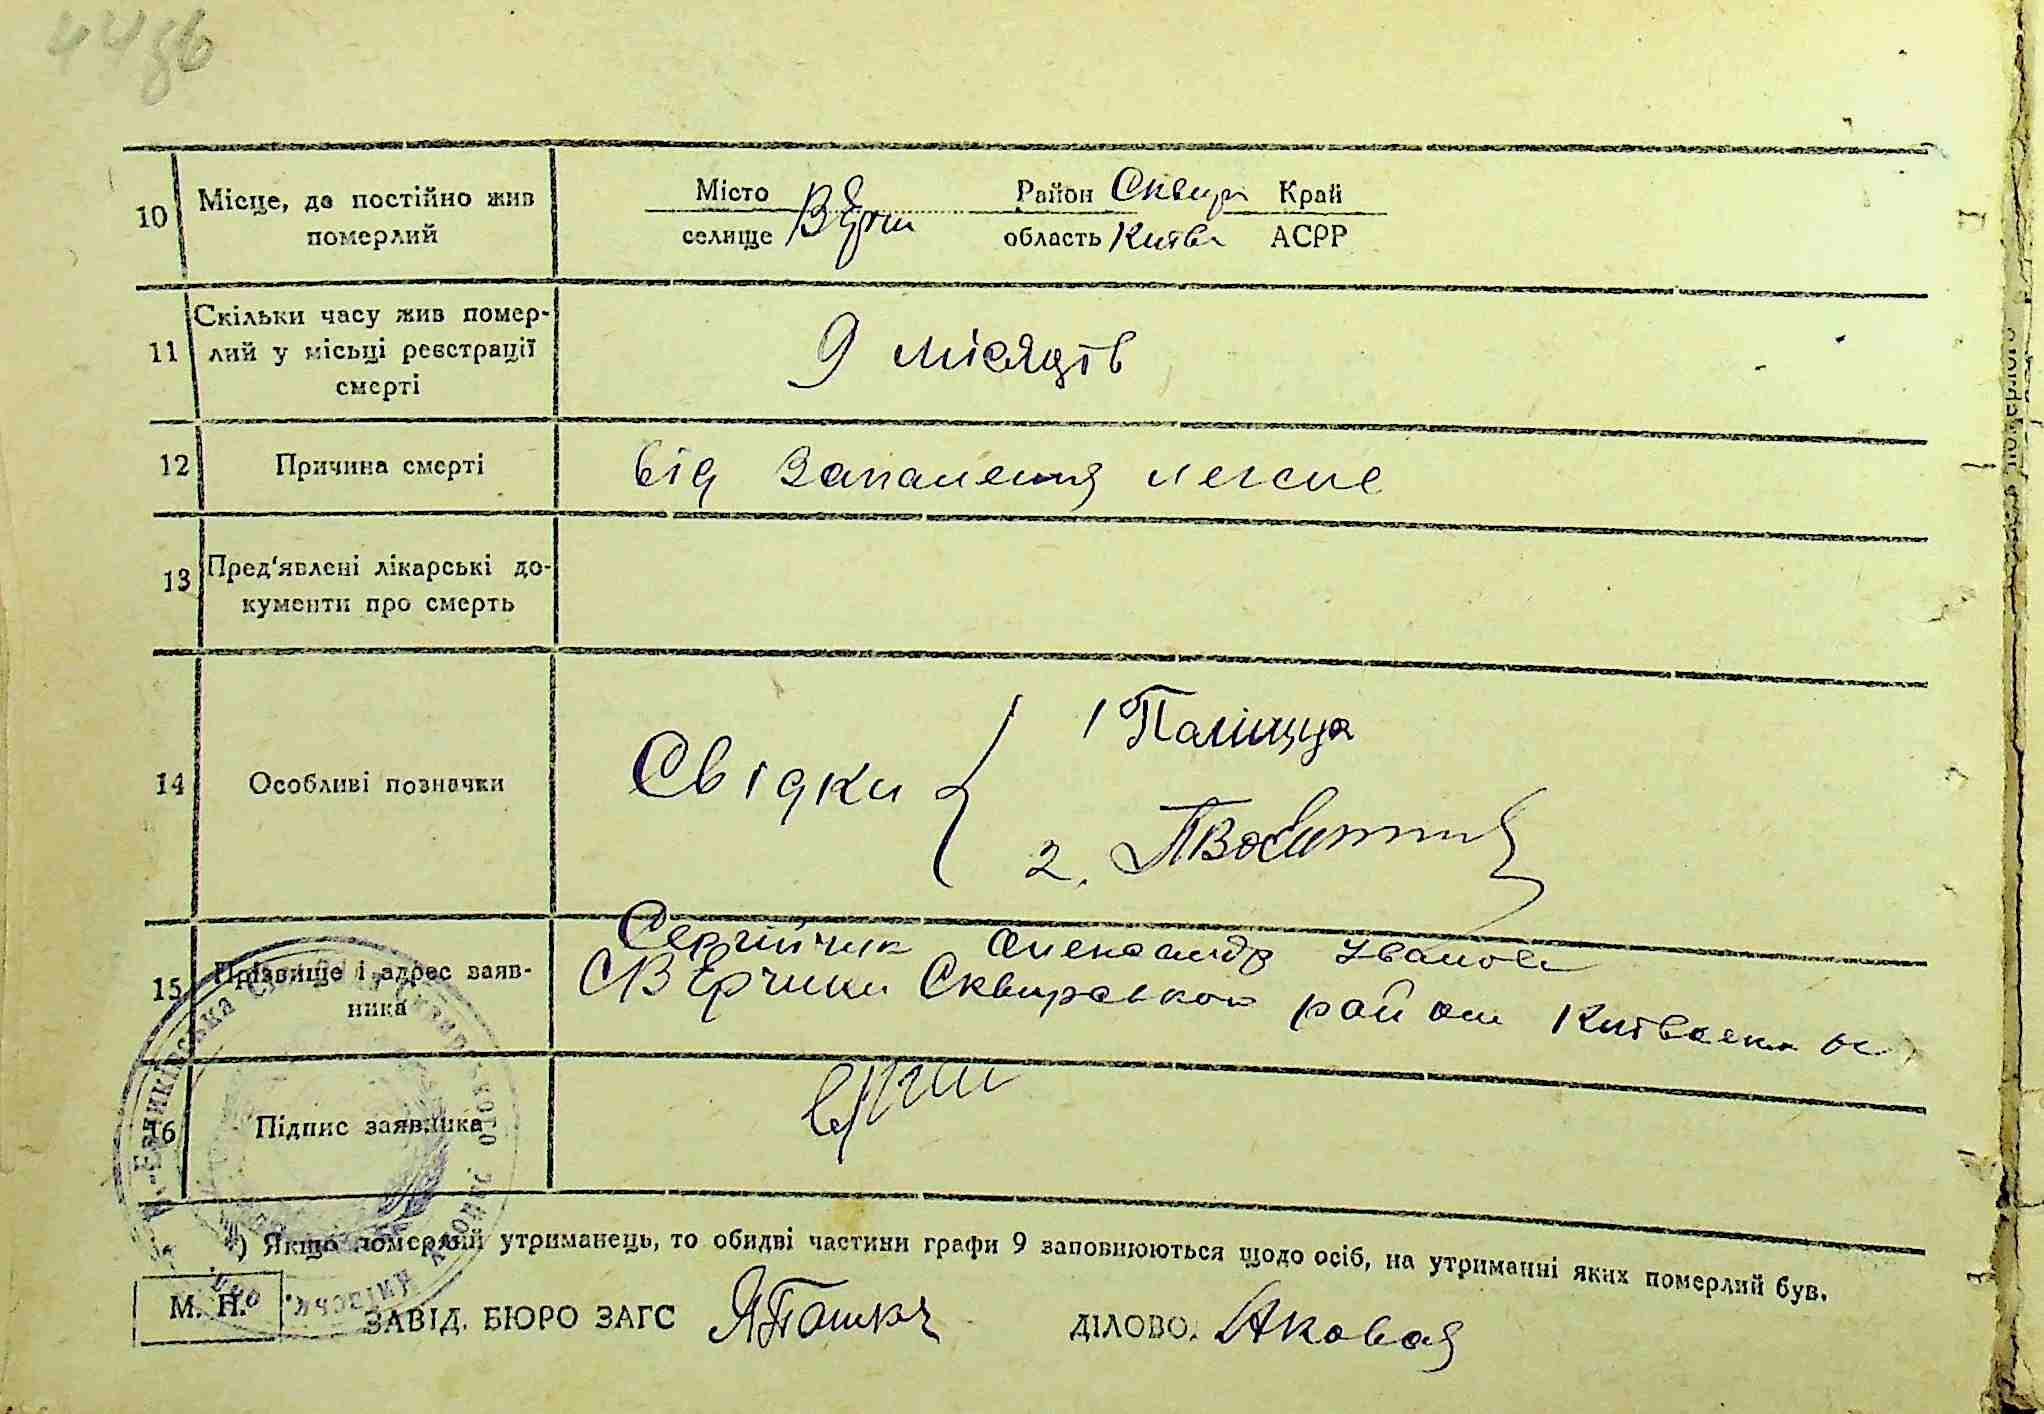 44зв
10 Місце, де постійно жив померлий
Місто селище В Єрчи Район Сквир область Київ Край АСРР
11 Скільки часу жив помер-
лий у місьці реєстрації
смерті
9 місяців
12 Причина смерті
від Запалення легень
13 Пред'явлені лікарські до-
кументи про смерть
14 Особливі позначки
Свідки 1 Паліщук
2.
15 Прізвище і адрес заяв-
ника
Сергійчик Олександр Іванов
С В Єрчики Сквирського району Київськ об
16 Підпис заявника
*) Якщо померлий утриманець, то обидві частини графи 9 заповнюються щодо осіб, на утриманні яких померлий був.
М. П.
ЗАВІД. БЮРО ЗАГС ДІЛОВОД.